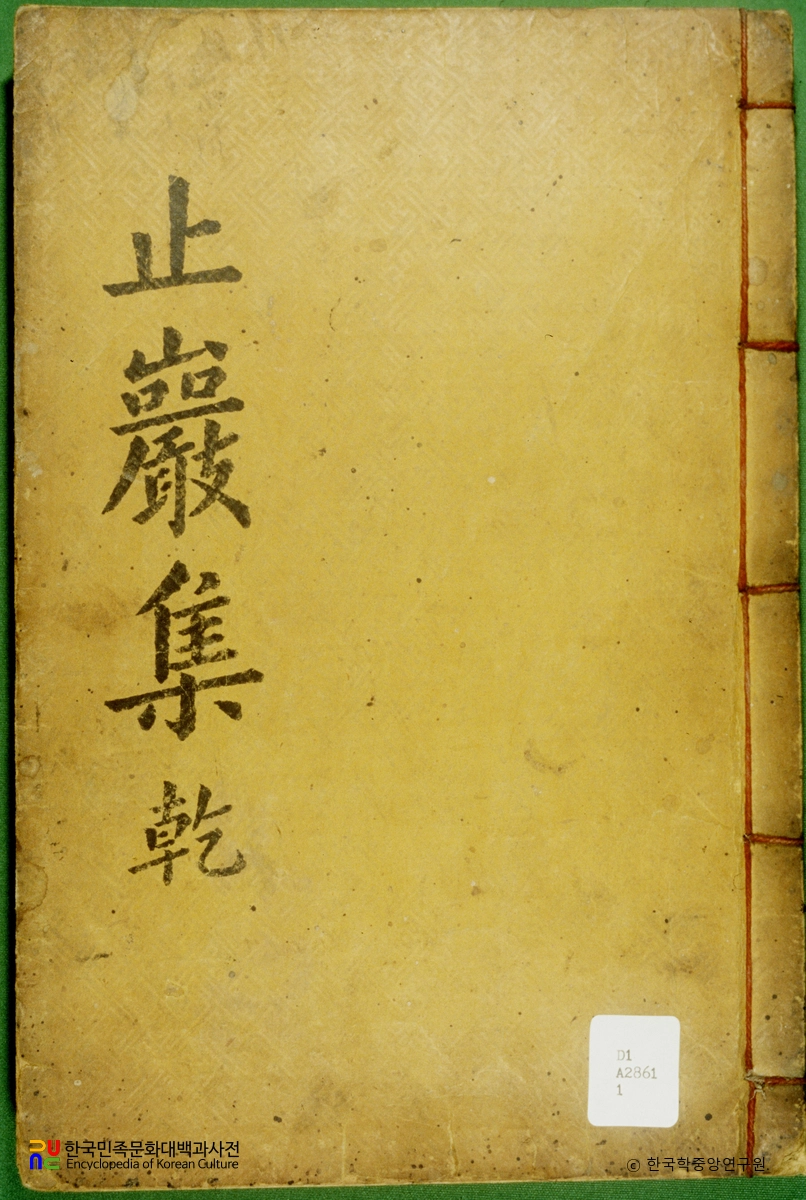 止巖集 乾
D1
A2861
1
한국민족문화대백과사전
Encyclopedia of Korean Culture
ⓒ 한국학중앙연구원